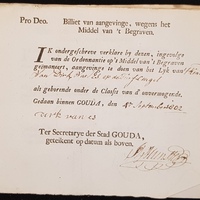 Pro Deo. Billiet van aangevinge, wegens het
Middel van 't Begraven.
IK ondergeschreve verklare by desen, ingevolge
van de Ordonnantie op 't Middel van 't Begraven
geëmaneert, aangevinge te doen van het Lyk van
Van
als gehorende onder de Classis van d'onvermogende.
Gedaan binnen GOUDA, den 4 September
Ter Secretarye der Stad GOUDA,
geteikent op datum als boven.